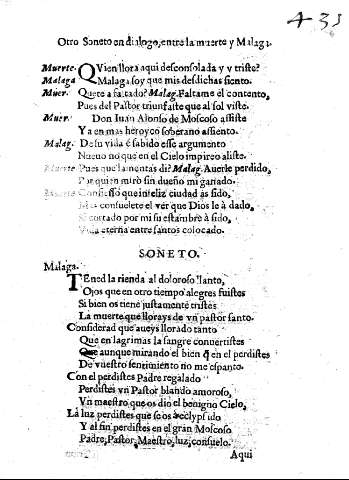 435
Otro Soneto en dialogo, entre la muerte y Malaga.
Muerte. QVien llora aqui desconsolada y y triste?
Malaga Malaga soy que mis desdichas siento.
Muer. Que te a faltado? Malag. Faltame el contento,
Pues del Pastor triunfaste que al sol viste.
Muer. Don Iuan Alonso de Moscoso assiste
Ya en mas heroyco soberano assiento.
Malag. De su vida é sabido esse argumento
Nueuo no que en el Cielo impireo aliste.
Muerte Pues que lamentas di? Malag. Auerle perdido,
Por quien miro sin dueño mi ganado.
Confiesso que infeliz ciudad as sido,
Mas consuelete el ver que Dios le à dado,
Si cortado por mi su estambre à sido,
Vida eterna entre santos colocado.
SONETO.
Malaga.
TEned la rienda al doloroso llanto,
Ojos que en otro tiempo alegres fuistes
Si bien os tiene justamente tristes
La muerte que llorays de vn pastor santo.
Considerad que aueys llorado tanto
Que en lagrimas la sangre conuertistes
Que aunque mirando el bien q̃ en el perdistes
De vuestro sentimiento no me espanto.
Con el perdistes Padre regalado
Perdistes vn Pastor blando amoroso,
Vn maestro que os dio el benigno Cielo,
La luz perdistes que se os a eclypsado
Y al fin perdistes en el gran Moscoso
Padre, Pastor, Maestro, luz, consuelo.
Aqui